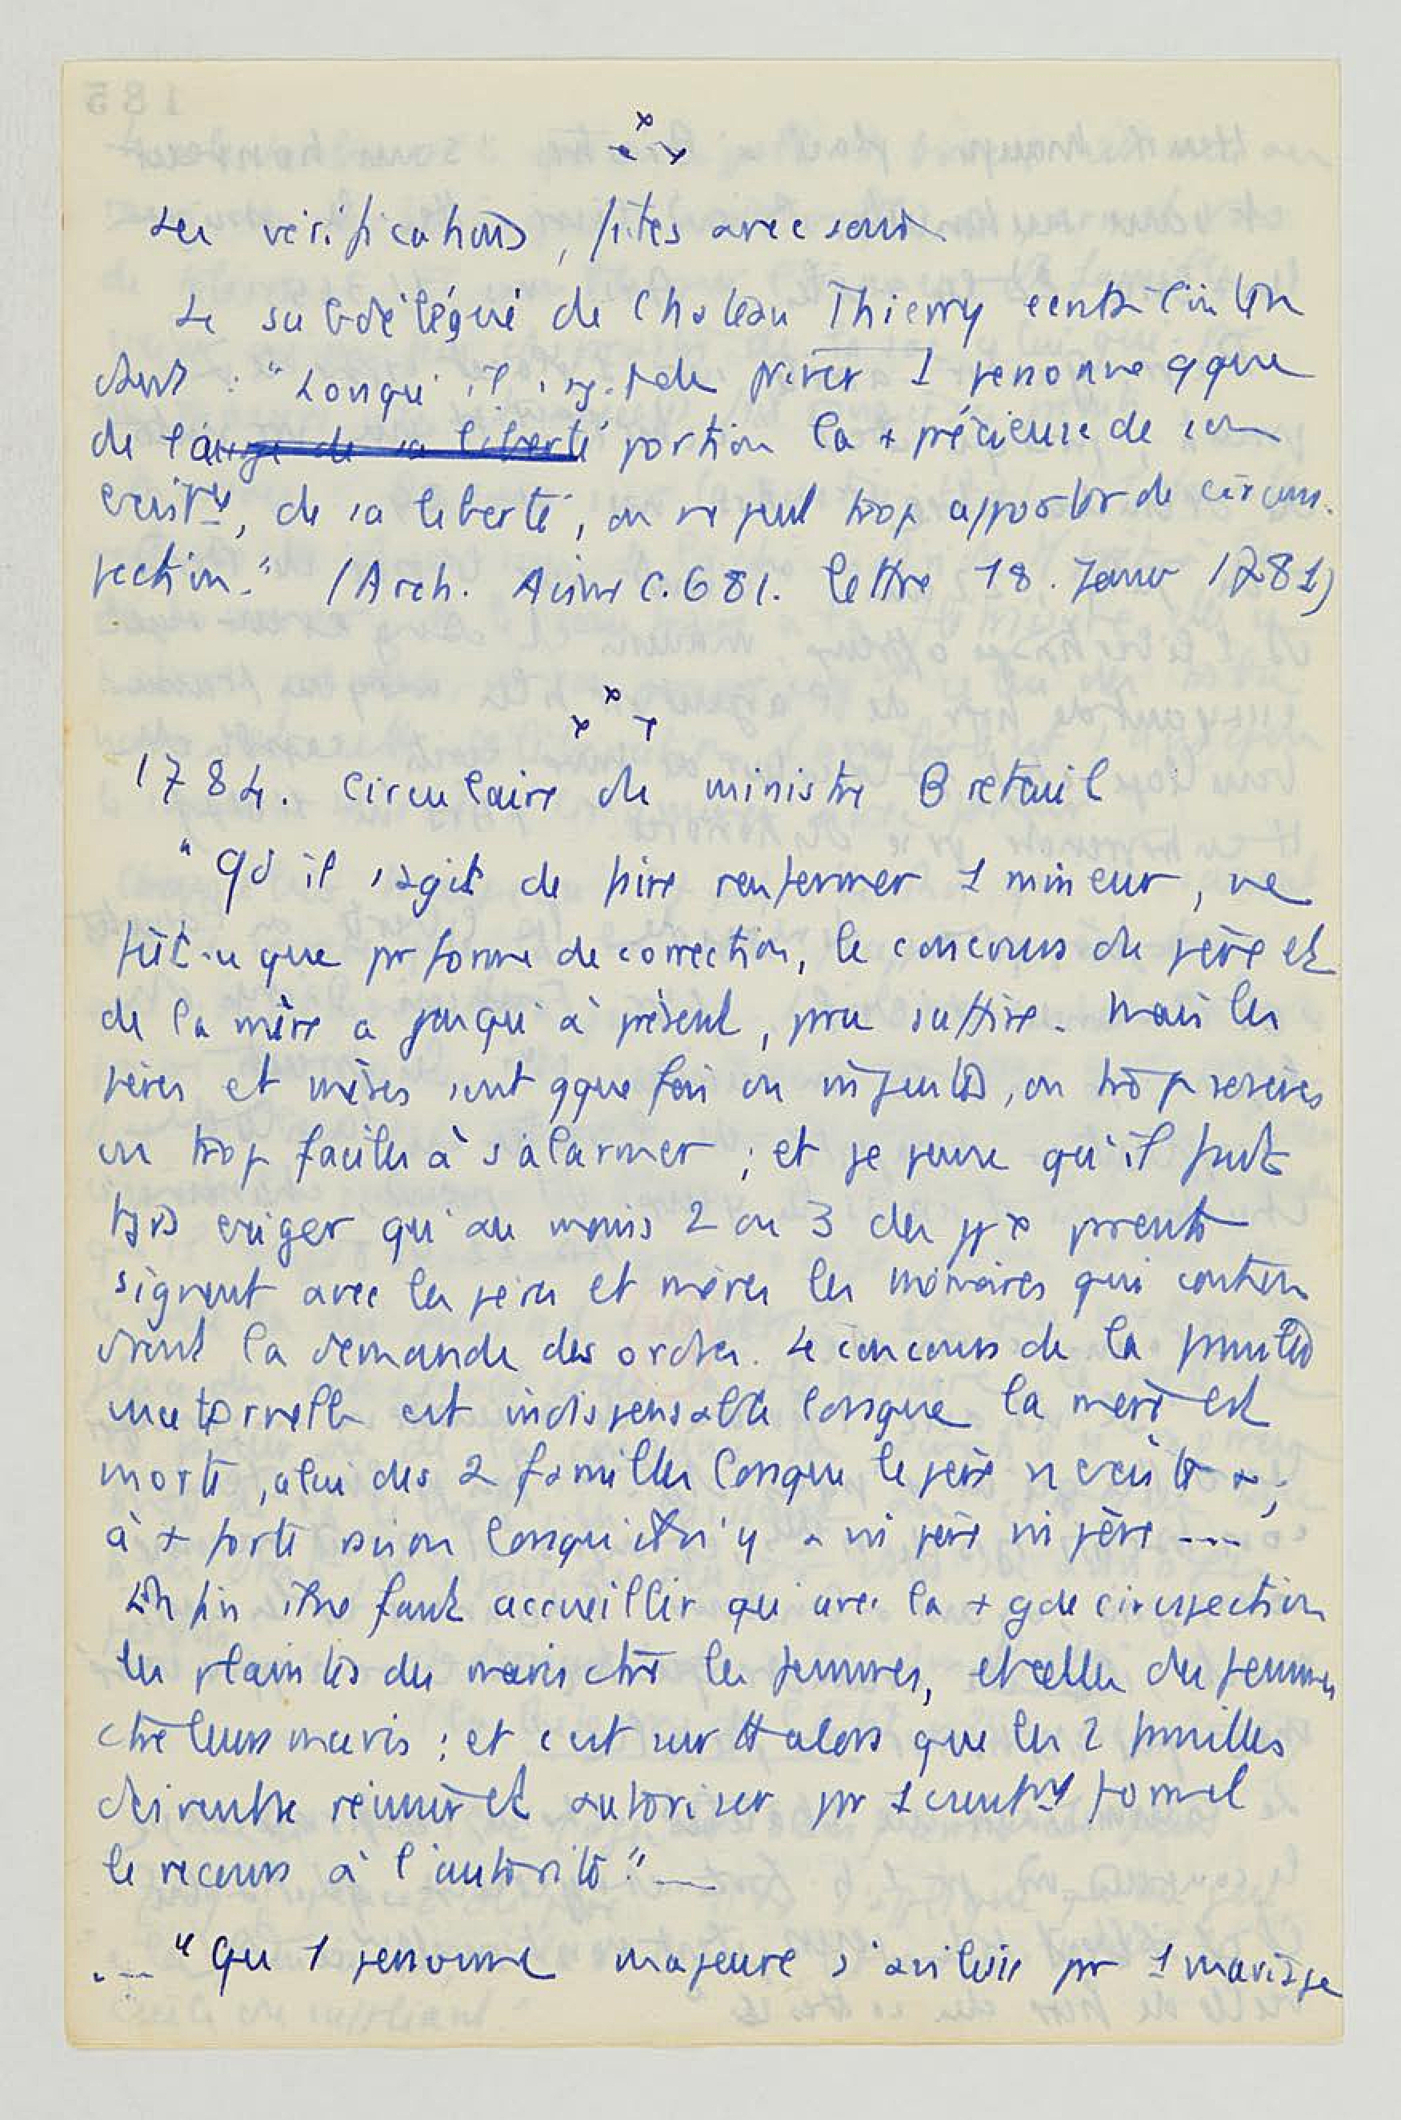 Les vérifications, faites avec soin
Le subdélégué de Chateau Thierry écrit à l'inten
dant : "Lorsqu'il s'agit de priver 1 personne qque
de l'au de sa liberté portion la + précieuse de son
exist., de sa liberté, on ne peut trop apporter de circons
pection." (Arch. Aisne C. 681. lettre 18. Janv 1781)
1784. Circulaire du ministre Breteuil
"Qd il s'agit de faire renfermer 1 mineur, ne
fût-ce que pr forme de correction, le concours du père et
de la mère a jusqu'à présent, pru suffire. Mais les
pères et mères sont qque fois ou injustes, ou trop sévères
ou trop faciles à s'alarmer ; et je pense qu'il faut
tjrs exiger qu'au moins 2 ou 3 des ppx parents
signent avec les pères et mères les mémoires qui contien
dront la demande des ordres. Le concours de la famille
maternelle est indispensable lorsque la mère est
morte, celui des 2 familles lorsque le père n'existe + ;
à + forte raison lorsqu'il n'y a ni père ni père ---
Enfin il ne faut accueillir qu'avec la + gde circuspection
les plaintes des maris ctre les femmes, et celles des femmes
ctre leurs maris : et c'est surtt alors que les 2 familles
doivent se réunir et autoriser pr 1 consentt formel
le recours à l'autorité" —
... "Qu'1 personne majeure s'avilisse pr 1 mariage